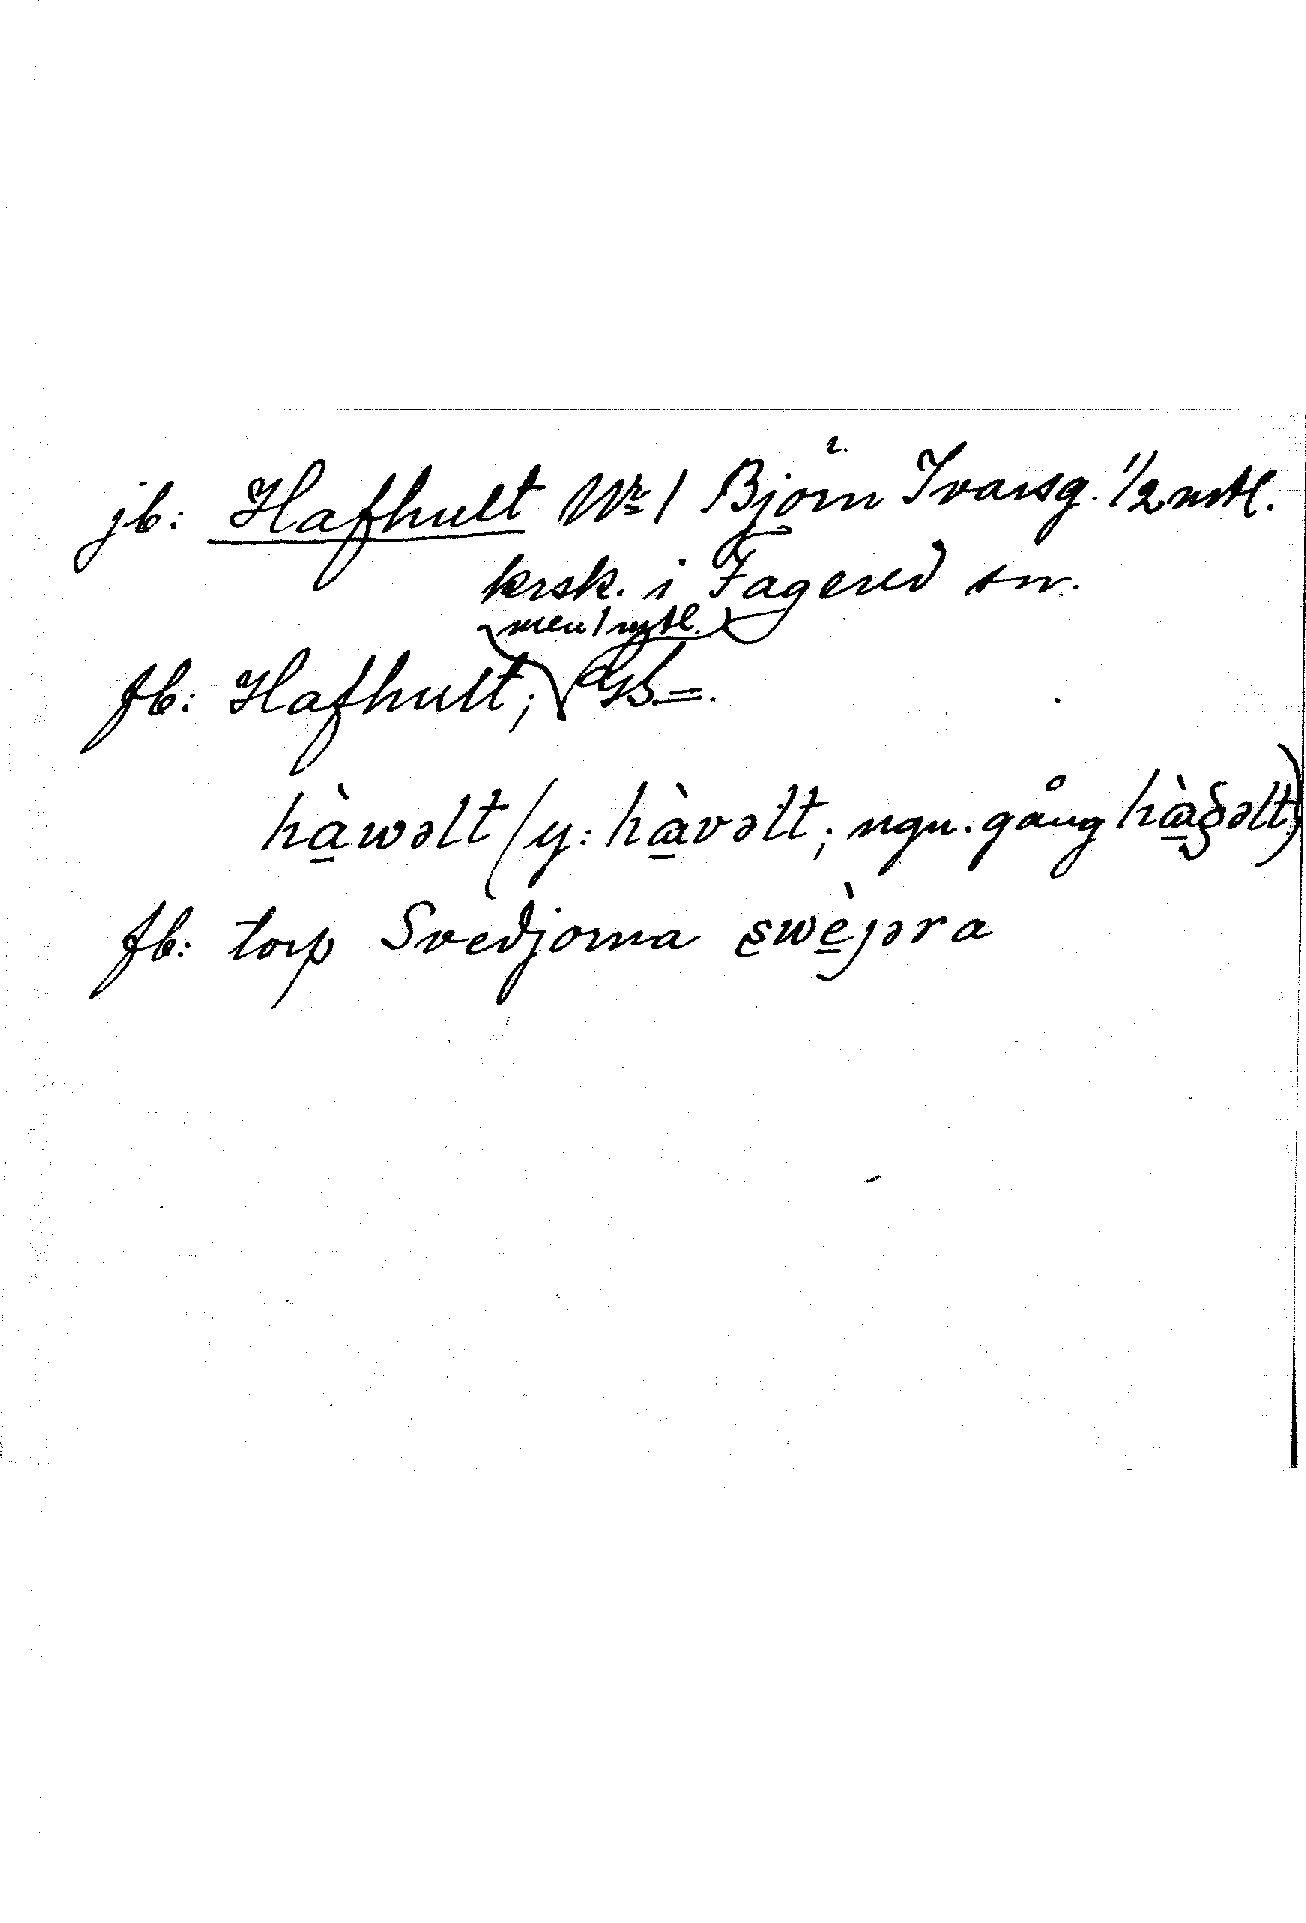 jb: Hafhult Nr 1 Björn Ivarsg. 1/2 mtl.
krsk. i Fagered sn.
men 1 mtl.
fb: Hafhult; GS=.
hàwəlt (y: hàvəlt; ngn. gång hàƺəlt)
fb: torp Svedjorna swèjəra